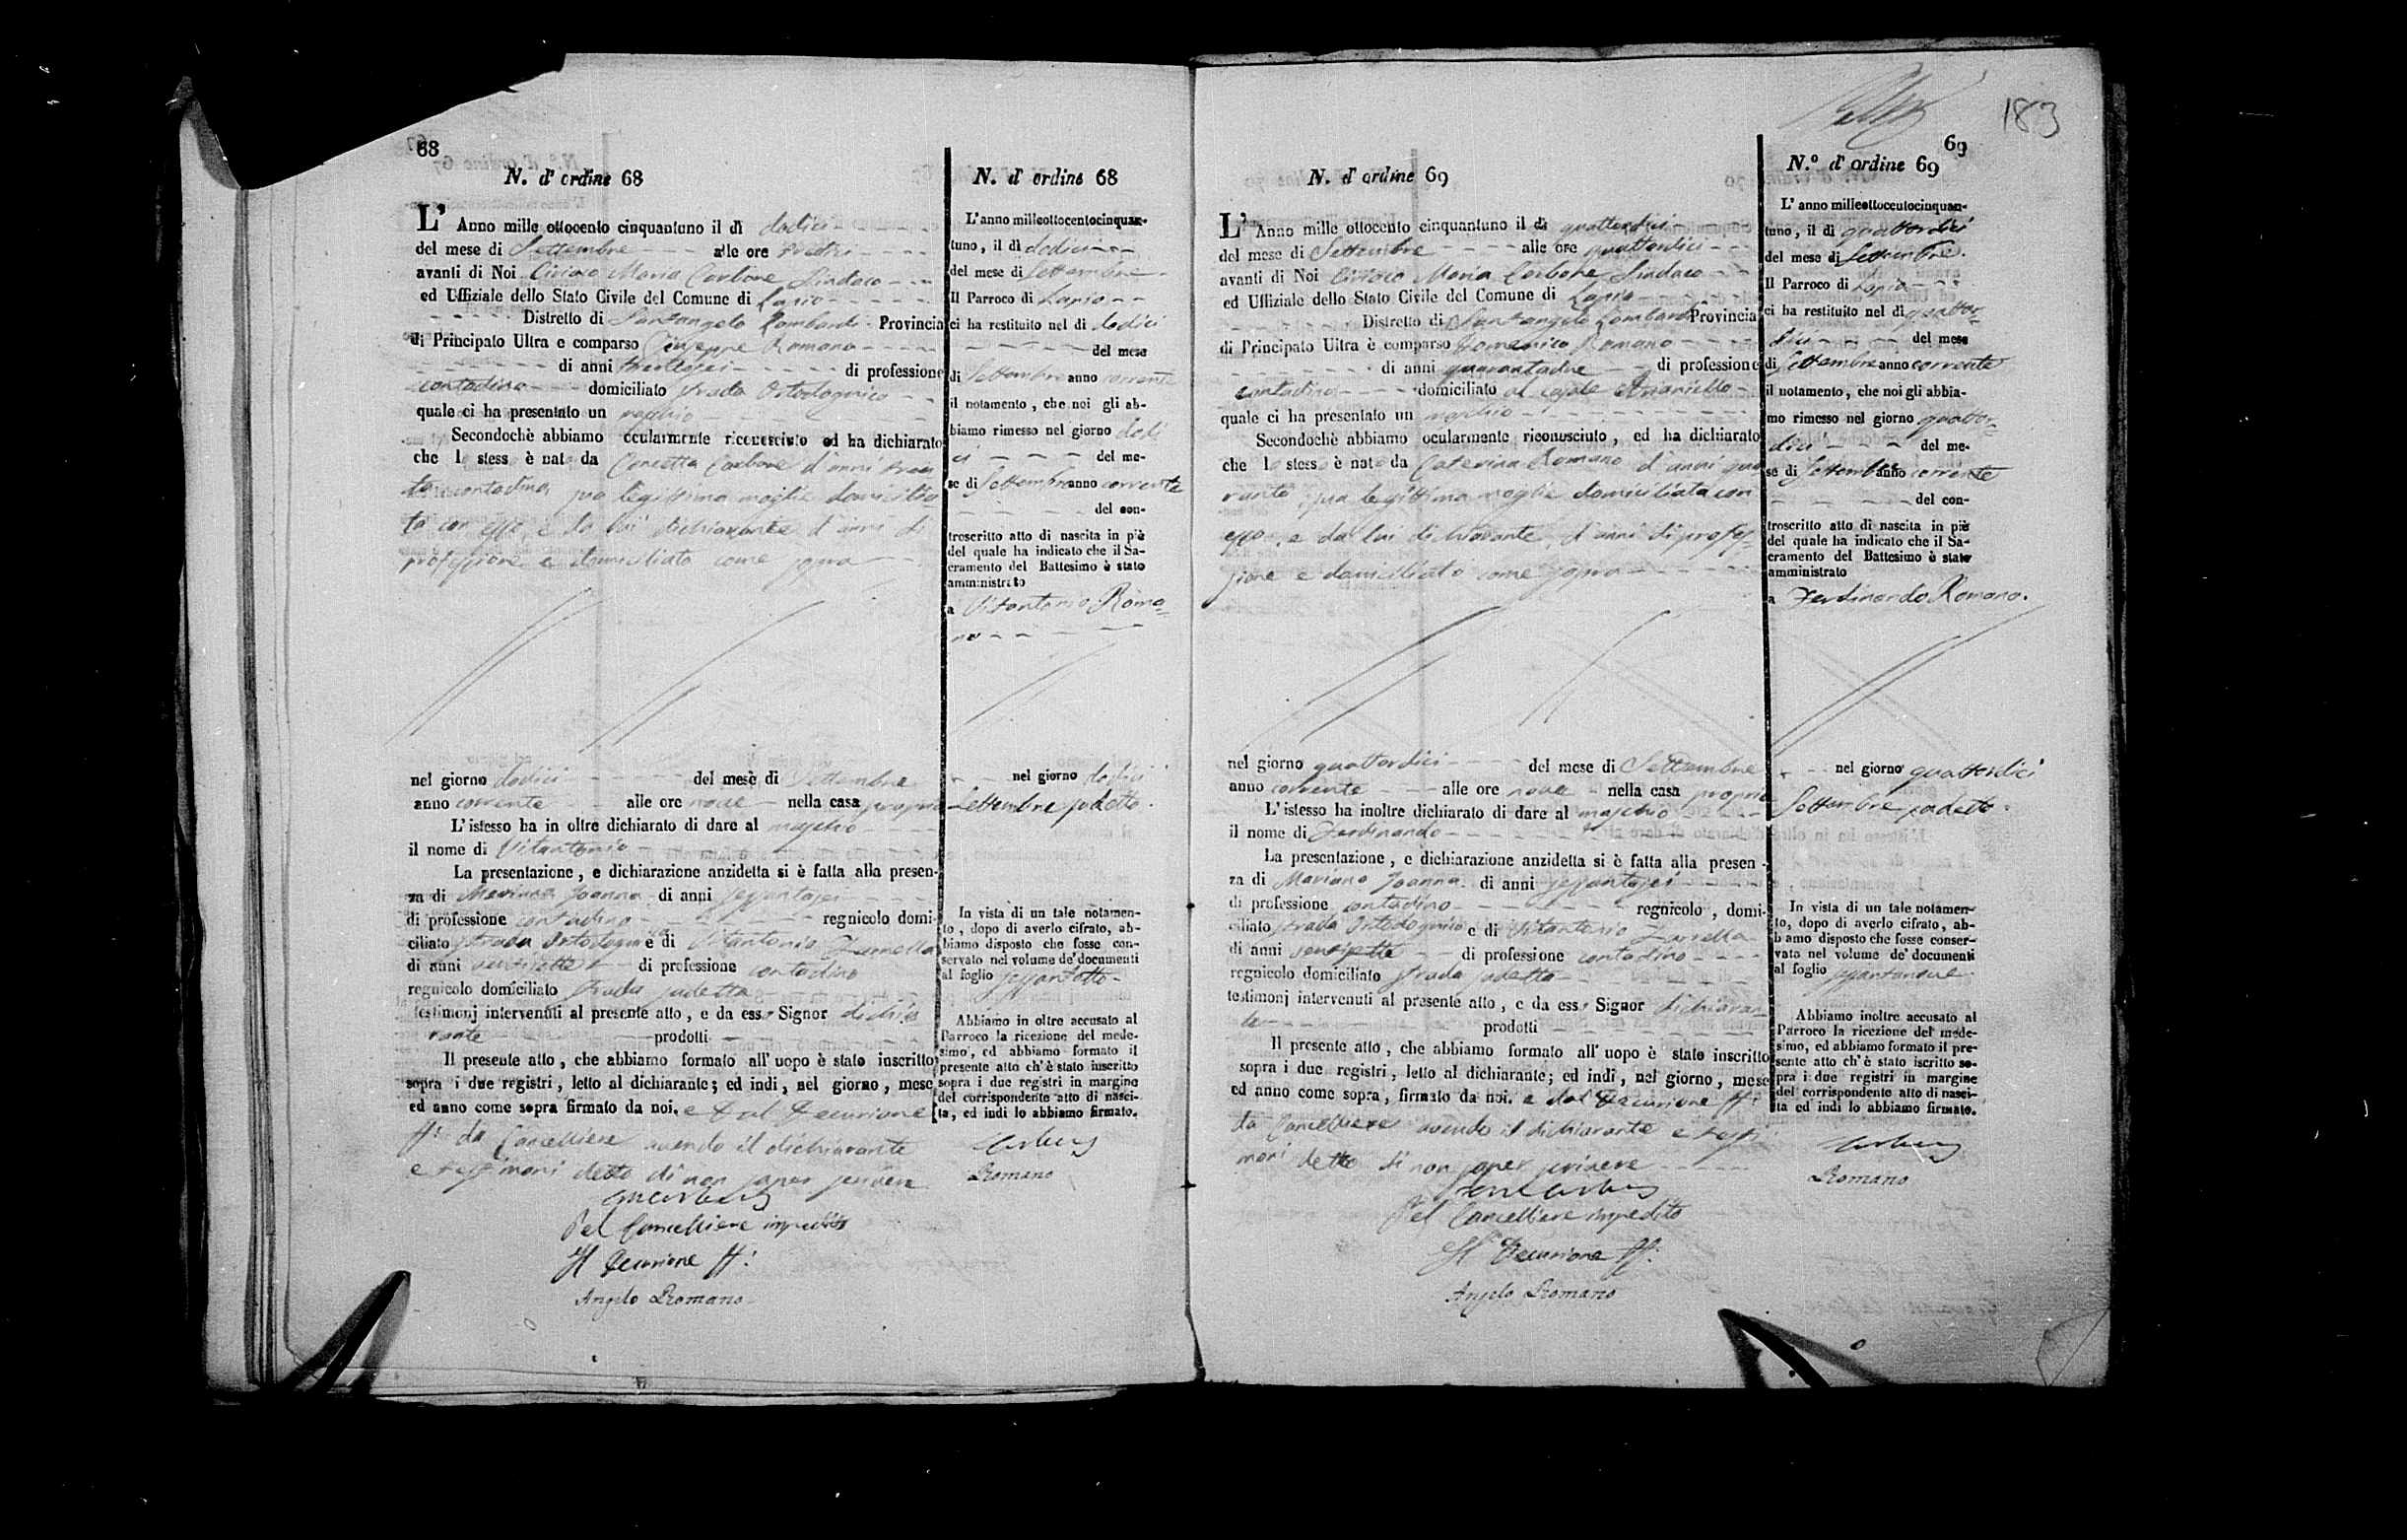 68
N. d' ordine 68
L' Anno mille ottocento cinquantuno il dì dodici
del mese di Settembre alle ore
avanti di Noi Ciriaco Maria Carbone Sindaco
ed Uffiziale dello Stato Civile del Comune di Lapio
Distretto di Santangelo Lombardi Provincia
di Principato Ultra e comparso Giuseppe Romano
di anni trentasei di professione
contadino domiciliato strada Ortodognico
quale ci ha presentato un maschio
Secondochè abbiamo ocularmente riconosciuto ed ha dichiarato
che l stess è nato da Concetta Carbone d'anni tren
ta contadina sua legittima moglie domicilia
ta con esso, e da lui dichiarante d'anni di
professione e domiciliato come sopra
nel giorno dodici del mese di Settembre
anno corrente alle ore nove nella casa propria
L' istesso ha in oltre dichiarato di dare al maschio
il nome di Vitantonio
La presentazione, e dichiarazione anzidetta si è fatta alla presen-
za di Mariano Joanna di anni sessantasei
di professione contadino regnicolo domi-
ciliato strada Ortodognico e di Vitantonio Zarrella
di anni ventisette di professione contadino
regnicolo domiciliato strada sudetta
testimonj intervenuti al presente atto, e da esso Signor dichia
rante prodotti
Il presente atto, che abbiamo formato all' uopo è stato inscritto
sopra i due registri, letto al dichiarante; ed indi, nel giorno, mese
ed anno come sopra firmato da noi, e dal Decurione
ff: da Cancelliere avendo il dichiarante
e testimoni detto di non saper scrivere
Pel Cancelliere impedito
Il Decurione ff:
Angelo Romano
N. d' ordine 68
L' anno milleottocentocinquan-
tuno, il dì dodici
del mese di Settembre
Il Parroco di Lapio
ci ha restituito nel dì dodici
del mese
di Settembre anno corrente
il notamento, che noi gli ab-
biamo rimesso nel giorno dodi
ci del me-
se di Settembre anno corrente
del con-
troscritto atto di nascita in piè
del quale ha indicato che il Sa-
cramento del Battesimo è stato
amministrato
a Vitantonio Roma-
no
nel giorno dodici
Settembre sudetto.
In vista di un tale notamen-
to, dopo di averlo cifrato, ab-
biamo disposto che fosse con-
servato nel volume de' documenti
al foglio sessantotto
Abbiamo in oltre accusato al
Parroco la ricezione del mede-
simo, ed abbiamo formato il
presente atto ch' è stato inscritto
sopra i due registri in margine
del corrispondente atto di nasci-
ta, ed indi lo abbiamo firmato.
Carbone
Romano
183
69
N. d' ordine 69
L' Anno mille ottocento cinquantuno il dì quattordici
del mese di Settembre alle ore quattordici
avanti di Noi Ciriaco Maria Carbone Sindaco
ed Uffiziale dello Stato Civile del Comune di Lapio
Distretto di Santangelo Lombardi Provincia
di Principato Ultra è comparso Domenico Romano
di anni quarantadue di professione
contadino domiciliato al casale Arianiello
quale ci ha presentato un maschio
Secondochè abbiamo ocularmente riconosciuto, ed ha dichiarato
che l stess è nato da Caterina Romano d'anni qua
ranta sua legittima moglie domiciliata con
esso, e da lui dichiarante, d'anni di profes-
sione e domiciliato come sopra
nel giorno quattordici del mese di Settembre
anno corrente alle ore nove nella casa propria
L' istesso ha inoltre dichiarato di dare al maschio
il nome di Ferdinando
La presentazione, e dichiarazione anzidetta si è fatta alla presen-
za di Mariano Joanna di anni sessantasei
di professione contadino regnicolo, domi-
ciliato strada Ortodognico e di Vitantonio Zarrella
di anni ventisette di professione contadino
regnicolo domiciliato strada sudetta
testimonj intervenuti al presente atto, e da esso Signor dichiaran
te prodotti
Il presente atto, che abbiamo formato all' uopo è stato inscritto
sopra i due registri, letto al dichiarante; ed indi, nel giorno, mese
ed anno come sopra, firmato da noi. e dal Decurione ff:
da Cancelliere avendo il dichiarante e testi
moni detto di non saper scrivere
Pel Cancelliere impedito
Il Decurione ff:
Angelo Romano
N.º d' ordine 69
L' anno milleottocentocinquan-
tuno, il dì quattordici
del mese di Settembre.
Il Parroco di Lapio
ci ha restituito nel dì quattor-
dici del mese
di Settembre anno corrente
il notamento, che noi gli abbia-
mo rimesso nel giorno quattor-
dici del me-
se di Settembre anno corrente
del con-
troscritto atto di nascita in piè
del quale ha indicato che il Sa-
cramento del Battesimo è stato
amministrato
a Ferdinando Romano.
nel giorno quattordici
Settembre sudetto.
In vista di un tale notamen-
to, dopo di averlo cifrato, ab-
biamo disposto che fosse conser-
vato nel volume de' documenti
al foglio sessantanove
Abbiamo inoltre accusato al
Parroco la ricezione del mede-
simo, ed abbiamo formato il pre-
sente atto ch' è stato iscritto so-
pra i due registri in margine
del corrispondente atto di nasci-
ta ed indi lo abbiamo firmato.
Carbone
Romano